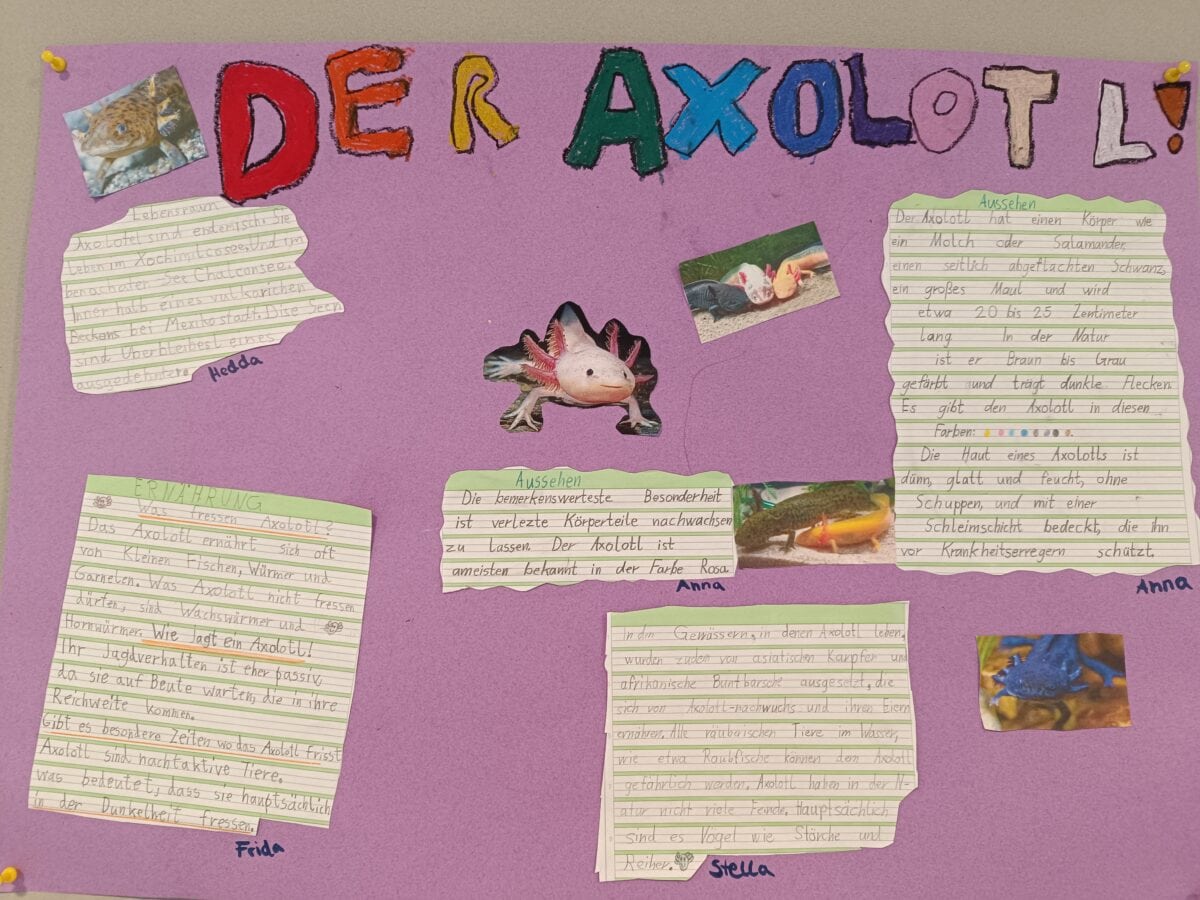 DER AXOLOTL!
Lebensraum
Axolotel sind endemisch. Sie
Leben im Xochimilcosee. Und im
benachbarter See Chalcosee.
Innerhalb eines vulkanichen
Beckens bei Mexikostadt. Dise Seen
sind Überbleibesl eines
ausgedehnter.
Hedda
Aussehen
Der Axolotl hat einen Körper wie
ein Molch oder Salamander,
einen seitlich abgeflachten Schwanz,
ein großes Maul und wird
etwa 20 bis 25 Zentimeter
lang In der Natur
ist er Braun bis Grau
gefärbt und trägt dunkle Flecken
Es gibt den Axolotl in diesen
Farben:
Die Haut eines Axolotls ist
dünn, glatt und feucht, ohne
Schuppen, und mit einer
Schleimschicht bedeckt, die ihn
vor Krankheitserregern schützt.
Anna
Aussehen
Die bemerkenswerteste Besonderheit
ist verlezte Körperteile nachwachsen
zu lassen. Der Axolotl ist
ameisten bekannt in der Farbe Rosa.
Anna
ERNÄHRUNG
Was fressen Axolotl?
Das Axolotl ernährt sich oft
von Kleinen Fischen, Würmer und
Garnelen. Was Axolotl nicht fressen
dürfen, sind Wachswürmer und
Hornwürmer. Wie Jagt ein Axolotl!
Ihr Jagdverhalten ist eher passiv,
da sie auf Beute warten, die in ihre
Reichweite kommen.
Gibt es besondere Zeiten wo das Axolotl frisst
Axolotl sind nachtaktive Tiere.
was bedeutet, dass sie hauptsächlich
in der Dunkelheit fressen.
Frida
In den Gewässern, in denen Axolotl leben,
wurden zudem von asiatischen Karpfen und
afrikanische Buntbarsche ausgesetzt, die
sich von Axolotl-nachwuchs und ihren Eiern
ernähren. Alle räuberischen Tiere im Wasser,
wie etwa Raubfische können dem Axolotl
gefährlich werden. Axolotl haben in der N-
atur nicht viele Feinde. Hauptsächlich
sind es Vögel wie Störche und
Reiher.
Stella